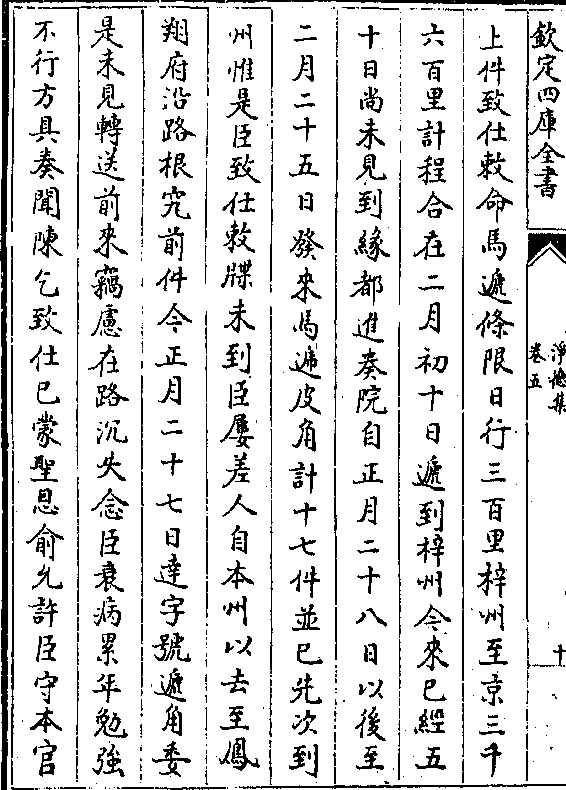 欽定四庫全書
淨德集
卷五
十
上件致仕敕命馬遞條限日行三百里梓州至京三千
六百里計程合在二月初十日遞到梓州今來已經五
十日尚未見到緣都進奏院自正月二十八日以後至
二月二十五日發來馬遞皮角計十七件並已先次到
州惟是臣致仕敕牒未到臣屢差人自本州以去至鳳
翔府沿路根究前件今正月二十七日達字號遞角委
是未見轉送前來竊慮在路沉失念臣衰病累年勉強
不行方具奏聞陳乞致仕已蒙聖恩俞允許臣守本官